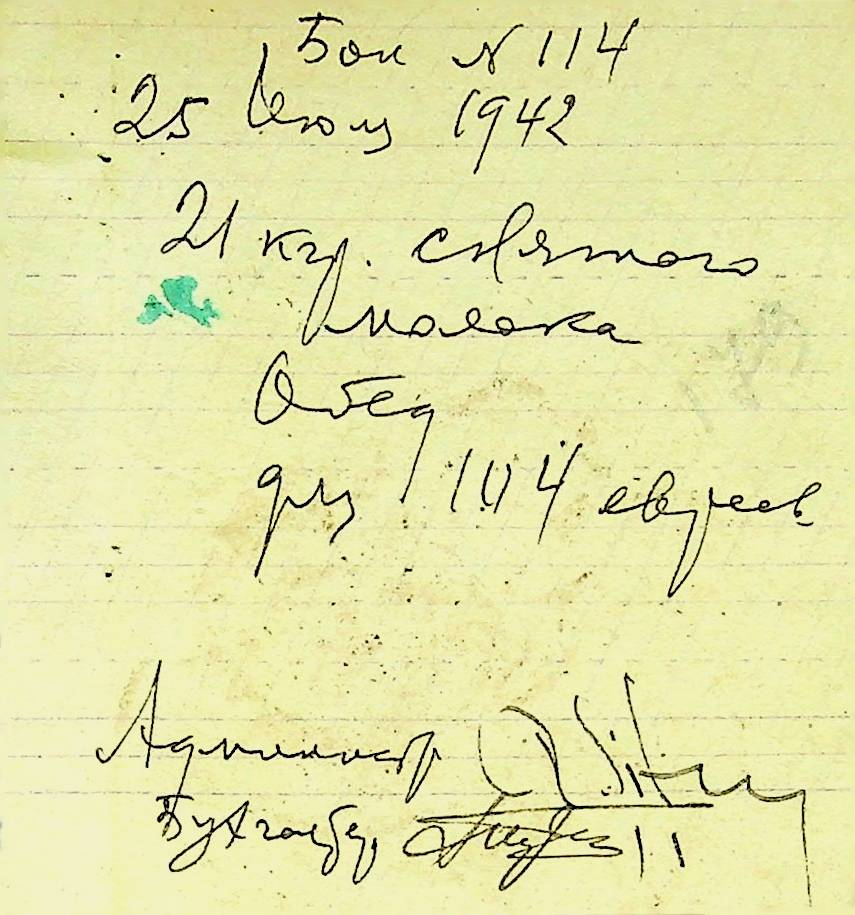 Бон № 114
25 Июля 1942
21 кгр. снятого
молока
Обед
для 104 евреев
Администр
Бухгалтер